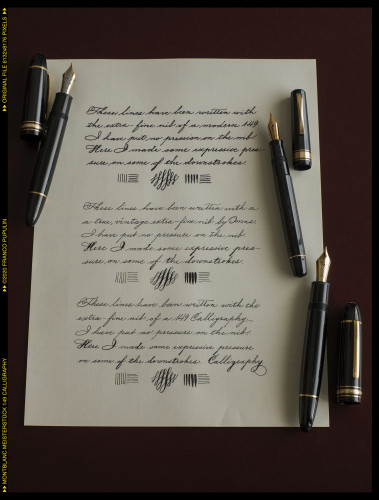 These lines have been written with
the extra-fine nib of a modern 149.
I have put no pression on the nib.
Here I made some expressive pres-
sure on some of the downstrokes.
These lines have been written with a
a true, vintage extra-fine nib by Omas.
I have put no pressure on the nib.
Here I made some expressive pres-
sure on some of the downstrokes.
These lines have been written with the
extra-fine nib of a 149 Calligraphy.
I have put no pressure on the nib.
Here I made some expressive pressure
on some of the downstrokes. Calligraphy
ORIGINAL FILE 6132x8176 PIXELS
©2020 FRANCO PUPULIN
MONTBLANC MEISTERSTÜCK 149 CALLIGRAPHY